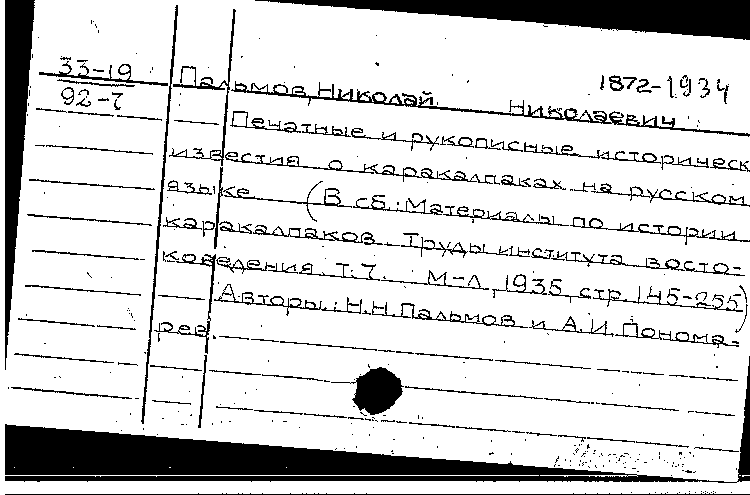 33-19
92-7
1872-1934
Пальмов, Николай Николаевич
Печатные и рукописные историческ
известия о каракалпаках на русском
языке (В сб.: Материалы по истории
каракалпаков. Труды института восто-
коведения. Т. 7. М-Л, 1935, стр. 145-255)
Авторы: Н.Н. Пальмов и А.И. Понома-
рев.